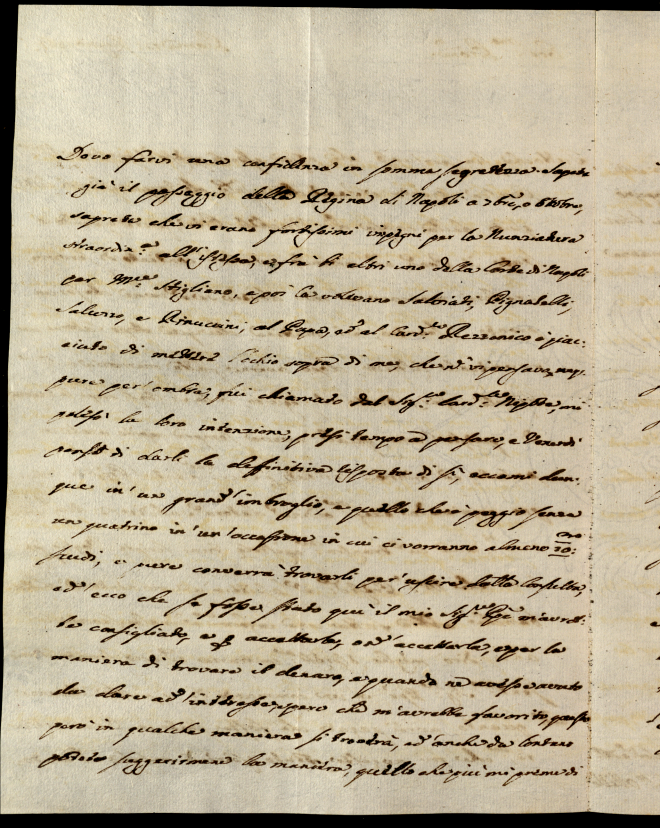 Devo farvi una confidenza in somma segretezza. Sapete
già il passaggio della Regina di Napoli a 7bre, o 8tobre,
saprete che vi erano fortissimi impegni per la Nunziatura
straordin.a all'istessa, e frà li altri uno della Corte di Napoli
per M.re Stigliano, e poi la volevano Salviati, Pignatelli,
Saluzzo, e Rinuccini, al Papa, ed al Card.le Rezzonico è piac-
ciuto di mettere l'occhio sopra di me, che n vi pensava nep-
pure per ombra; fui chiamato dal Sig.re Card.le Nipote, mi
palesò la loro intenzione, presi tempo a pensare, e Venerdì
pensò di darli la deffinitiva risposta di sì, eccomi dun-
que in un grand' imbroglio, e quello che è peggio senza
un quatrino in un'occasione in cui ci vorranno almeno 20:
scudi, e pure converrà trovarli per uscire dalla Consulta,
ed ecco che se fosse stato quì il mio Sig.re m'avreb-
be consigliato, e accettarla, ed accettarla, e per la
maniera di trovare il denaro, e quando ne avesse avuto
da dare ad interesse, spero che m'avrebbe favorito, questo
però in qualche maniera si troverà, ed anche da lontano
potrete suggerirmene la maniera, quello che più mi preme di